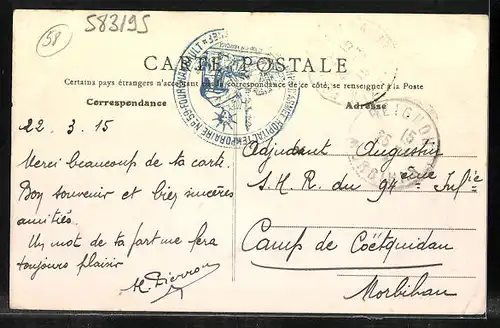 58
583195
CARTE POSTALE
Certains pays étrangers n'acceptant de correspondance de ce côté, se renseigner à la Poste
Correspondance
Adresse
22 . 3 . 15
Merci beaucoup de ta carte.
Bon souvenir et bien sincères
amitiés.
Un mot de ta part me fera
toujours plaisir
Adjudant Augustin
S.H.R. du 94ème Infie
Camp de Coëtquidan
Morbihan
HOPITAL TEMPORAIRE Nº 59